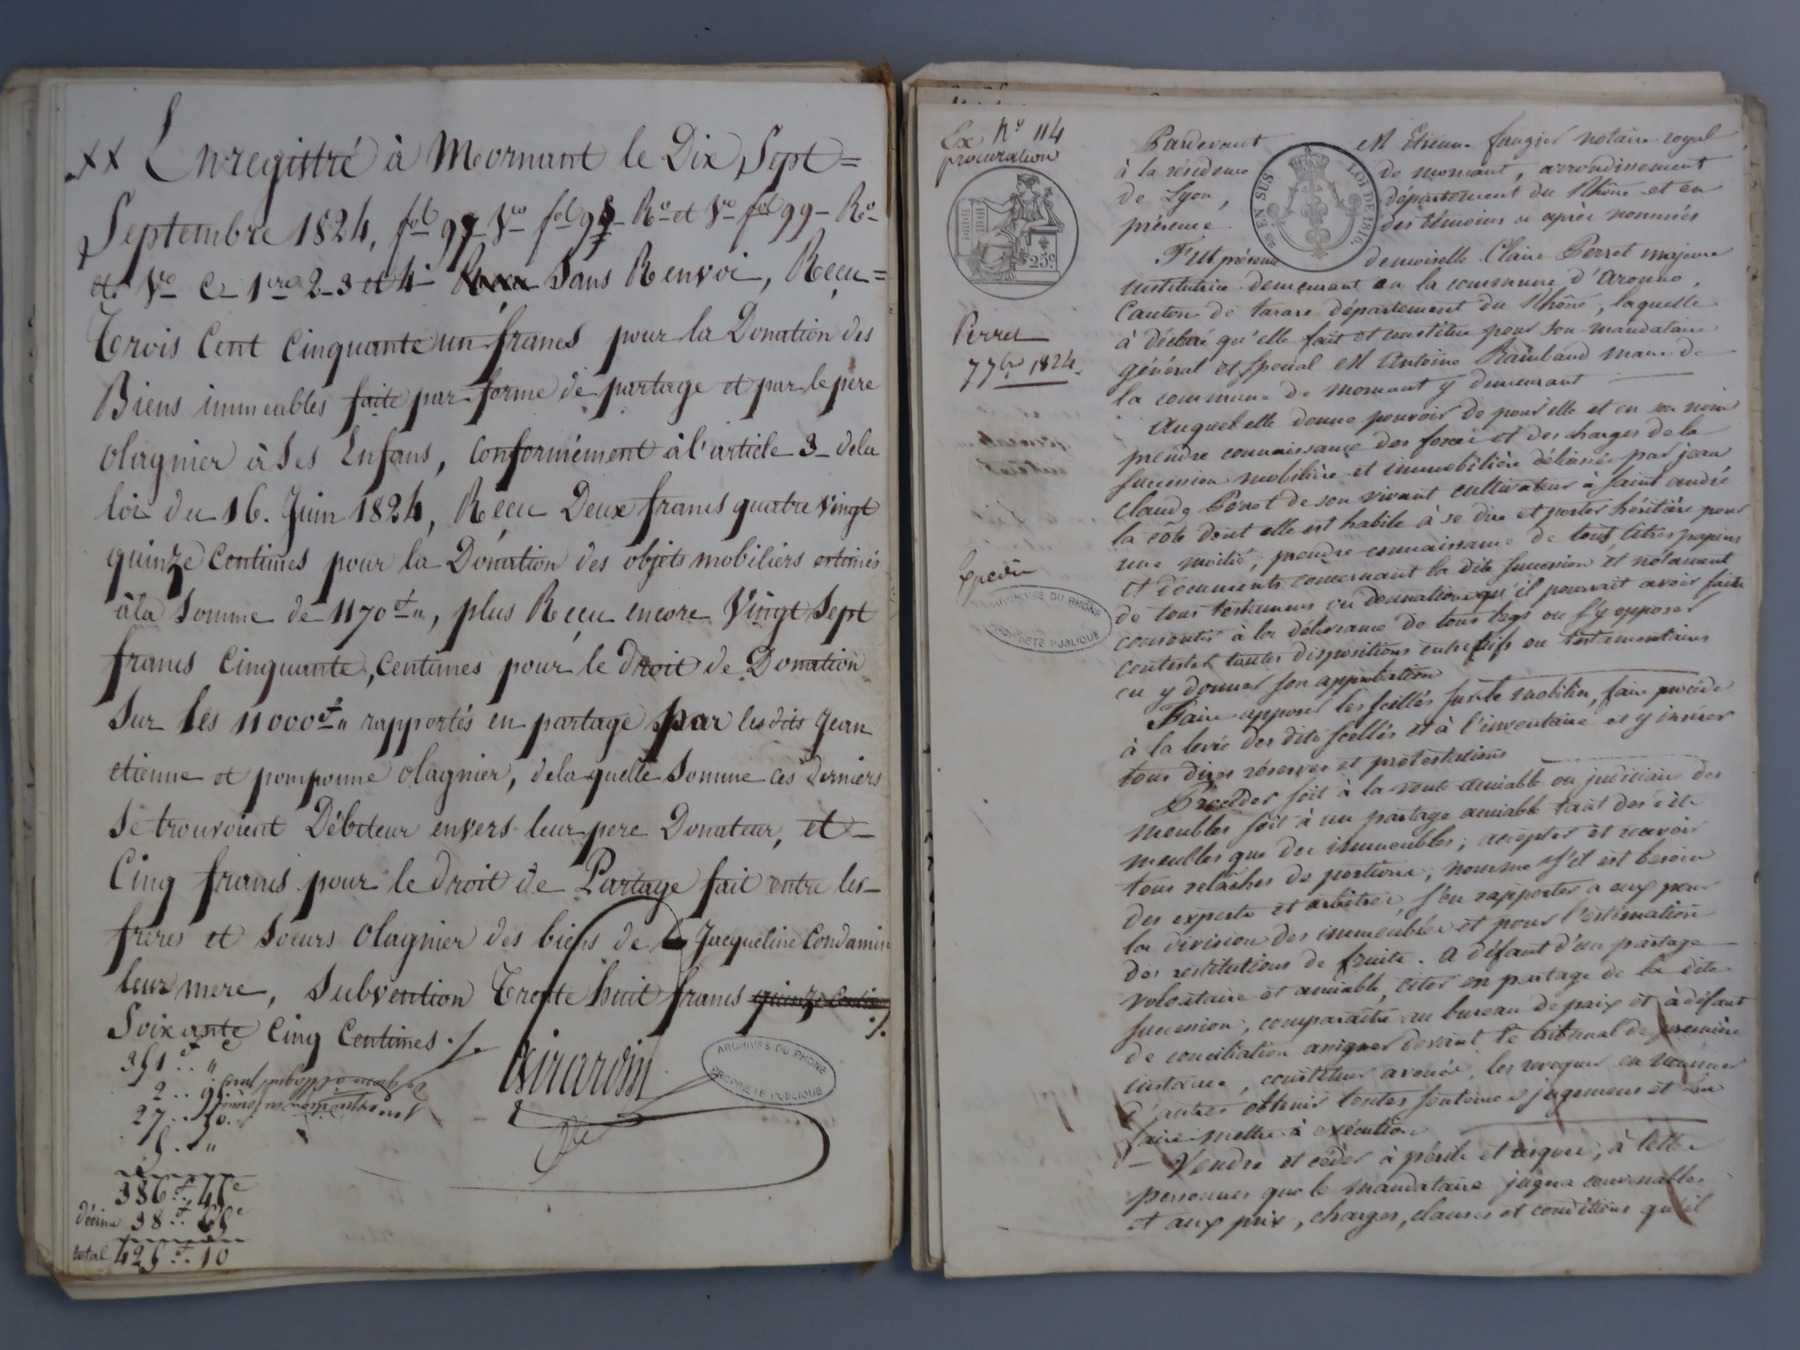 xx Enregistré à Mornant le Dix Sept=
Septembre 1824, fol 97 Vo fol 98 Ro et Vo fol 99 Ro
et Vo Ce 1res 2-3 et 4e Sans Renvoi, Reçu=
Trois Cent Cinquante un francs pour la Donation des
Biens immeubles faite par forme de partage et par le père
olagnier à Ses Enfans, Conformément à l'article 3 de la
loi du 16. Juin 1824, Reçu Deux francs quatre vingt
quinze Centimes pour la Donation des objets mobiliers estimés
à la Somme de 1170 f "", plus Reçu encore Vingt Sept
francs Cinquante Centimes pour le droit de Donation
Sur les 11000 f "" rapportés en partage par lesdits Jean
etienne et pomponne olagnier, de laquelle Somme ces derniers
Se trouvoient Débiteur envers leur pere Donateur, et
Cinq francs pour le droit de Partage fait entre les
freres et soeurs olagnier des biens de Jacqueline Condamin
leur mere, Subvention Trente huit francs quinze Centimes
Soixante Cinq Centimes ./.
351 f .. "
2 .. 95
27 .. 50
5 .. "
386 f .. 45 c
décime 38 f .. 65 c
total 425 f .. 10
Girardin
ARCHIVES DU RHÔNE
PROPRIÉTÉ PUBLIQUE
Ex No 114
procuration
25c
Perret
7 7bre 1824
Expédié
ARCHIVES DU RHÔNE
PROPRIÉTÉ PUBLIQUE
EN SUS LOI DE 1816.
Pardevant Me Etienne faugier notaire royal
à la résidence de mornant, arrondissement
de Lyon, département du Rhône et en
présence des témoins ci après nommés
Fut présente demoiselle Claire Perret majeure
institutrice demeurant en la commune d'
Canton de tarare département du Rhône, laquelle
à déclaré qu'elle fait et constitue pour son mandataire
général et spécial M Antoine Raimbaud maire de
la commune de mornant y demeurant
Auquel elle donne pouvoir de pour elle et en son nom
prendre connaissance des forces et des charges de la
succession mobilière et immobilière délaissée par jean
claude Perret de son vivant cultivateur a saint andré
la côte dont elle est habile à se dire et porter héritière pour
une moitié; prendre connaissance de tous titres papiers
et documents concernant la dite succession et notament
de tous testamens ou donnations qu'il pourrait avoir faits
consentir à la délivrance de tous legs ou s'y opposer
contester toutes dispositions entrevifs ou testamentaires
ou y donner son approbation
Faire apposer les scellés sur le mobilier, faire procéder
à la levée des dits scellés et à l'inventaire et y insérer
tous dires réserves et protestations
Procéder soit à la vente amiable ou judiciaire des
meubles soit à un partage amiable tant des dits
meubles que des immeubles; accepter et recevoir
tous relâches de portions; nommer s'il est besoin
des experts et arbitres, s'en rapporter a eux pour
la division des immeubles et pour l'estimation
des restitutions de fruits. A défaut d'un partage
volontaire et amiable, citer en partage de la dite
succession, comparaître au bureau de paix et à défaut
de conciliation assigner devant le tribunal de première
instance, constituer avoués, les revoquer en nommer
d'autres obtenir toutes sentences jugemens et les
faire mettre à exécution
Vendre et céder à périls et risques, à telles
personnes que le mandataire jugera convenables
et aux prix, charges, clauses et conditions qu'il